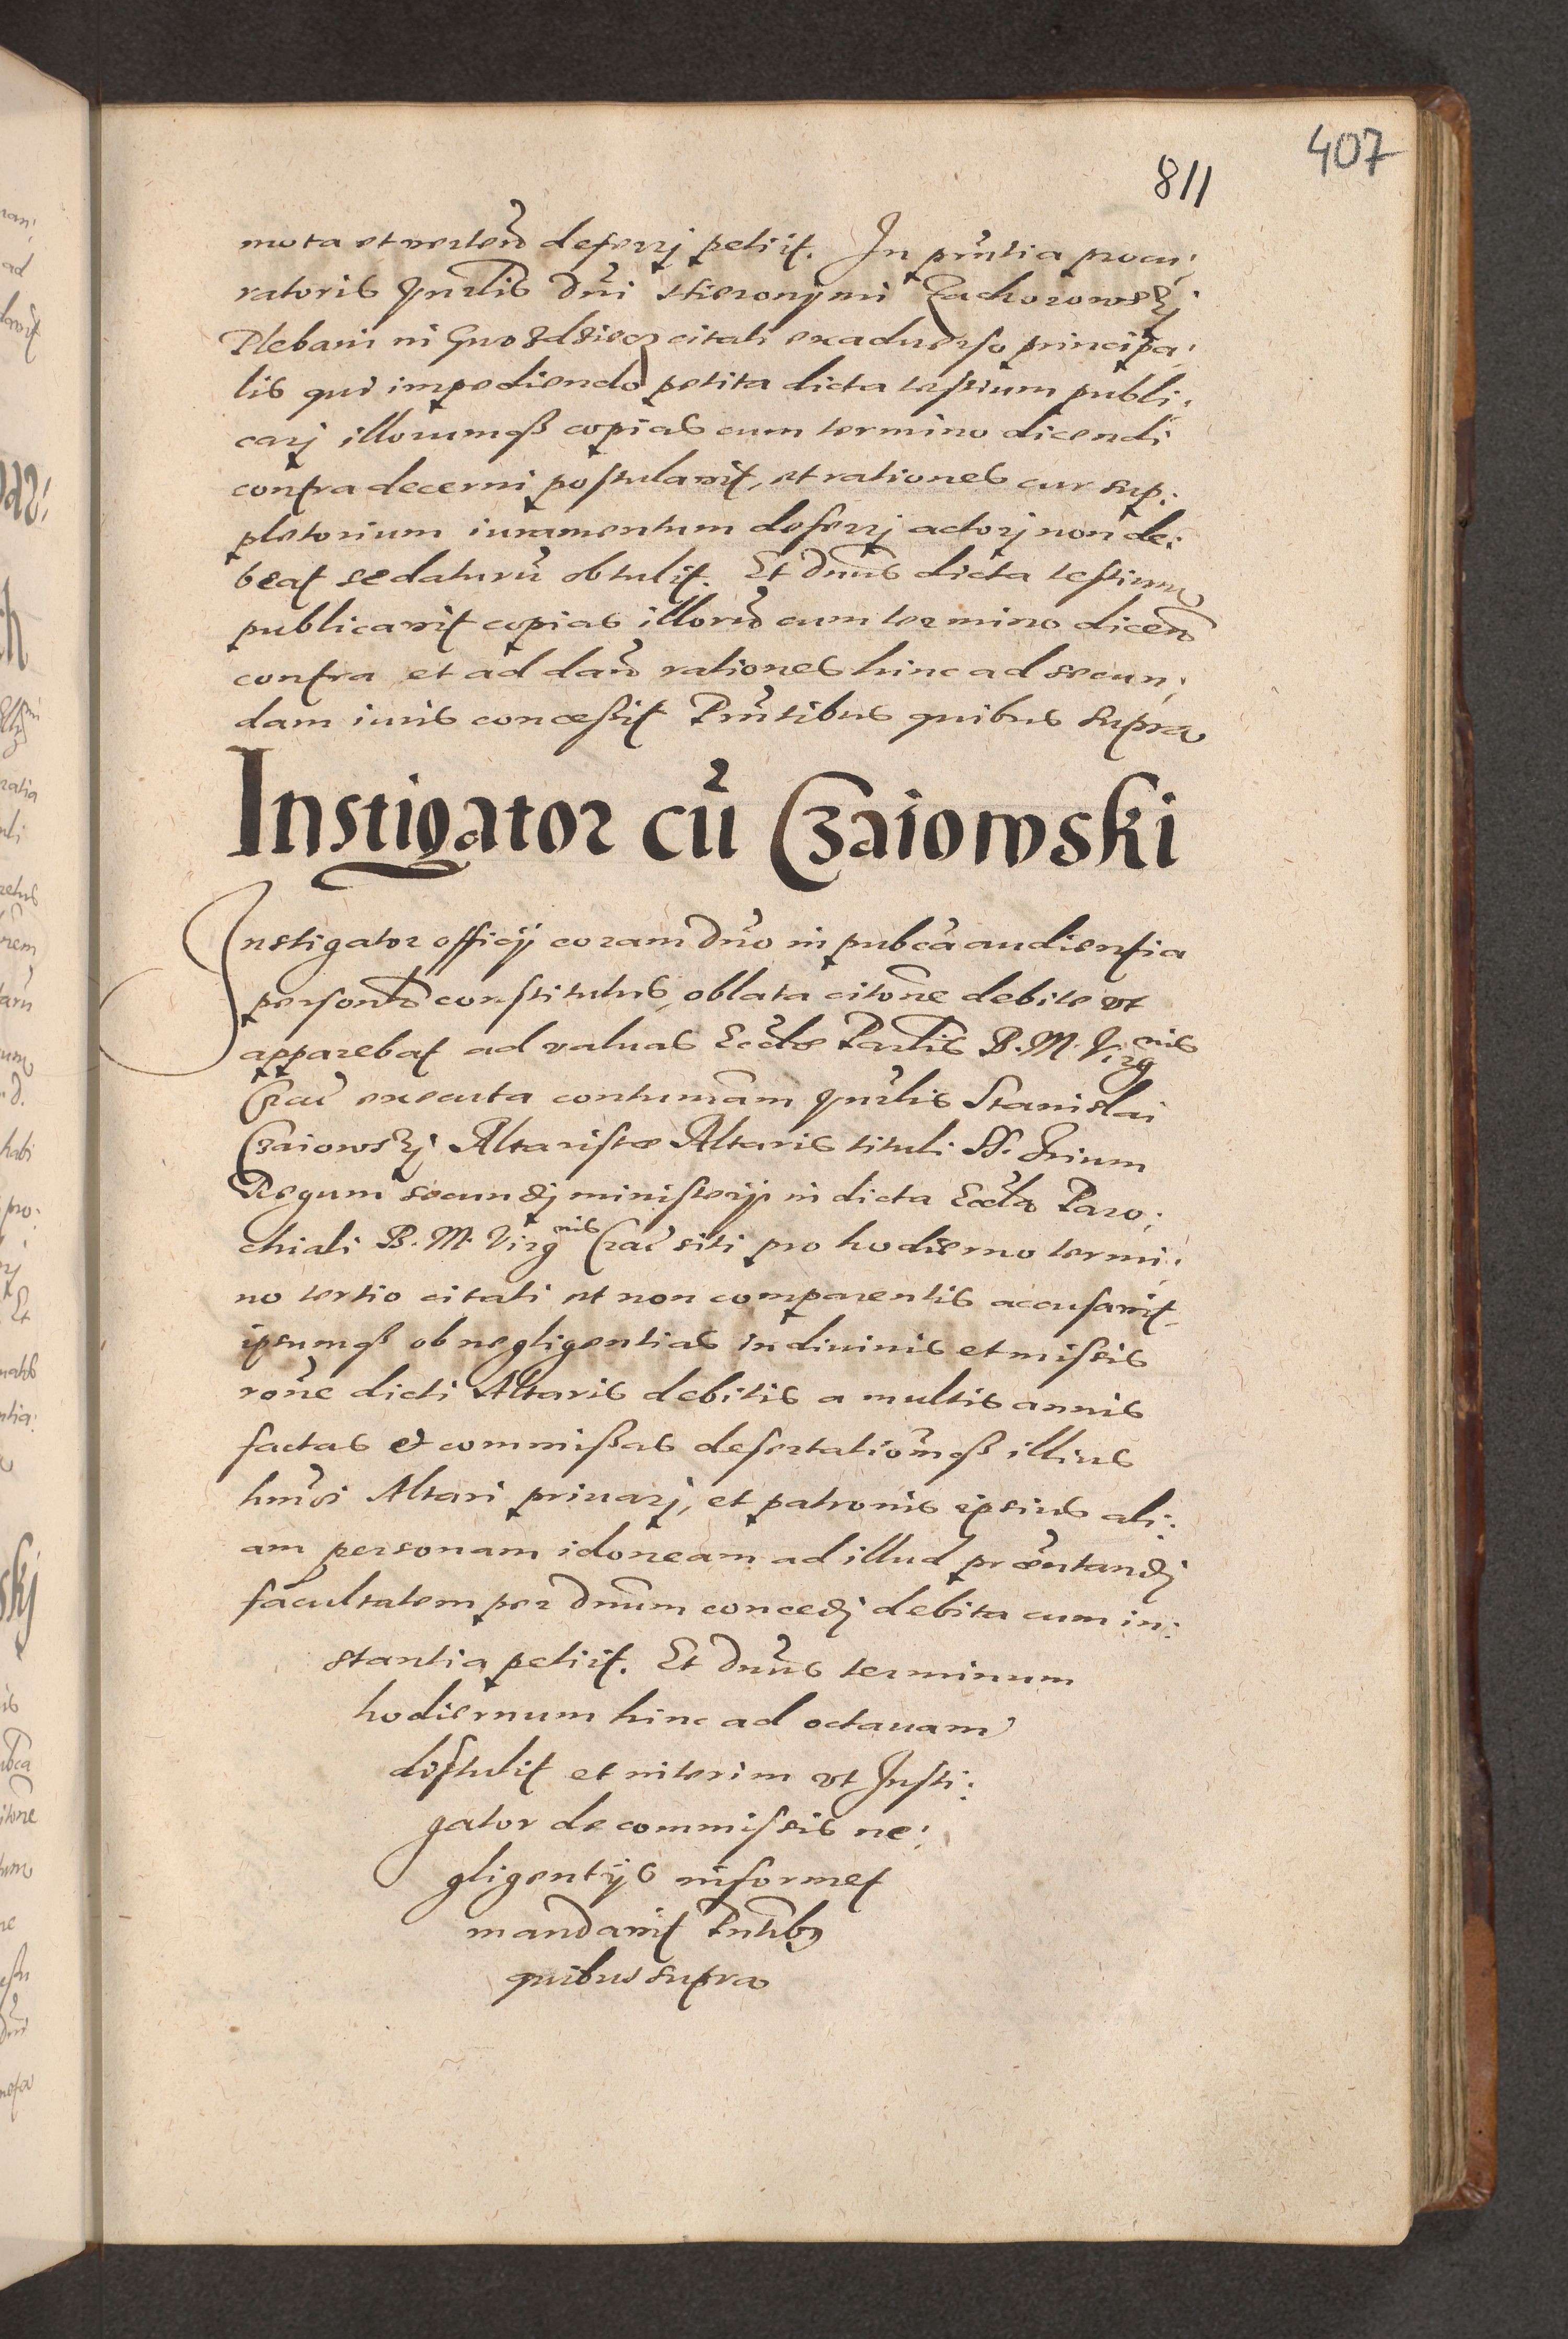 407
811
mota et verten̄ deferrj petiit. In pn̄tia procu:
ratoris Gn̄alis Dn̄i Hieronymi Zachorowskj
Plebani in Gwozdziecz citati exaduerso principa:
lis qui impediendo petita dicta testium publi:
carj illorumqß copias cum termino dicendi
contra decerni postulavit, et rationes cur sup:
pletorium iuramentum deferrj actorj non de:
beat se daturū obtulit. Et Dn̄us dicta testium
publicavit copias illorū cum termino dicen̄
contra et ad dan̄ rationes hinc ad secun:
dam iuris concessit Pn̄tibus quibus supra
Instigator cū Czaiowski
Instigator officij coram Dn̄o in pubca audientia
personlr̄ constitutus, oblata citōne debite vt
apparebat ad valuas Eccl̄æ Parlis B. M. Virgnis
Crac̄ executa contumām Gn̄rlis Stanislai
Czaiowskj Altaristæ Altaris tituli SS. Trium
Regum secundj ministerij in dicta Eccl̄a Paro:
chiali B. M. Virgnis Crac̄ siti pro hodierno termi:
no tertio citati et non comparentis accusavit
ipsumqß ob negligentias in diuinis et missis
rōne dicti Altaris debitis a multis annis
factas et commißas desertatiōmqß illius
hm̄oi Altari priuarj, et patronis ipsius ali:
am personam idoneam ad illud præn̄tandj
facultatem per Dn̄um concedj debita cum in:
stantia petiit. Et Dn̄us terminum
hodiernum hinc ad octauam
distulit et interim vt Insti:
gator de commissis ne:
gligentijs informet
mandavit Pn̄tibꝫ
quibus supra